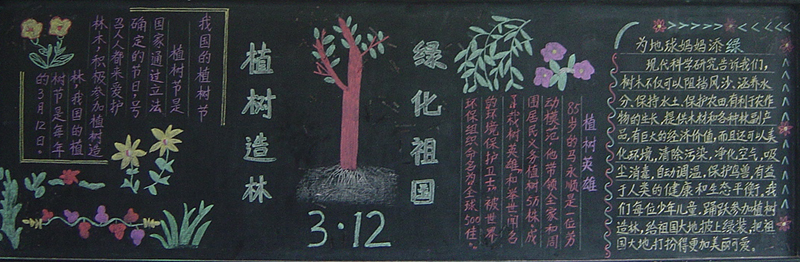 我国的植树节
植树节是
国家通过立法
确定的节日,号
召人人都来爱护
林木,积极参加植树造
林,我国的植
树节是年年
的3月12日。
植树造林
绿化祖国
3·12
植树英雄
85岁的马永顺是一位劳
动模范,他带领全家和周
围居民义务植树5万株,成
了栽树英雄和举世闻名
的环境保护卫士,被世界
环保组织命名为“全球500佳”。
为地球妈妈添绿
现代科学研究告诉我们,
树木不仅可以阻挡风沙,涵养水
分,保持水土,保护农田,有利于农作
物的生长,提供木材和各种林副产
品,有巨大的经济价值,而且还可以美
化环境,清除污染,净化空气,吸
尘消毒,自动调温,保护鸟兽,有益
于人类的健康和生态平衡,我
们每位少年儿童,踊跃参加植树
造林,给祖国大地披上绿装,把祖
国大地打扮得更加美丽可爱。